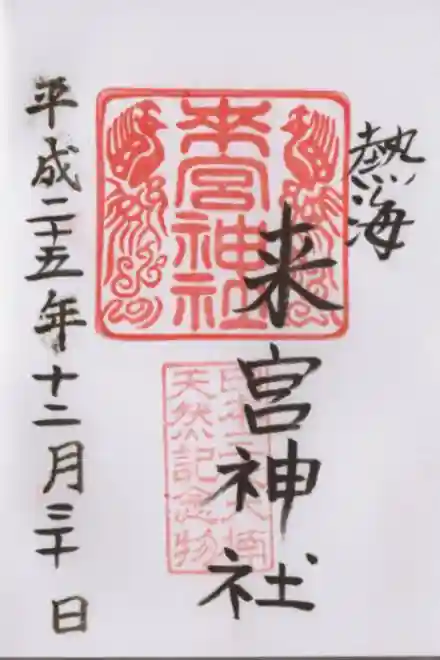 熱海
来宮神社
来宮神社
日本 大楠
天然記念物
平成二十五年十二月三十日